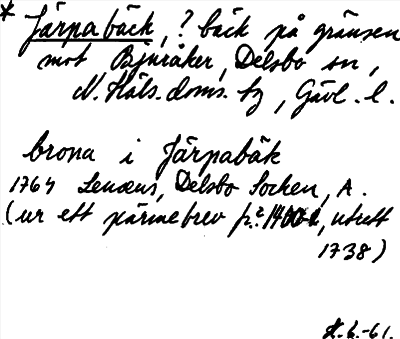 * Järpabäck, ? bäck på gränsen
mot Bjuråker, Delsbo sn,
N. Häls. doms. hg, Gävl. l.
brona i Järpabäk
1764 Lenæus, Delsbo Socken, A.
(ur ett pärmebrev fr. , utrett
1738)
H. G. -61.